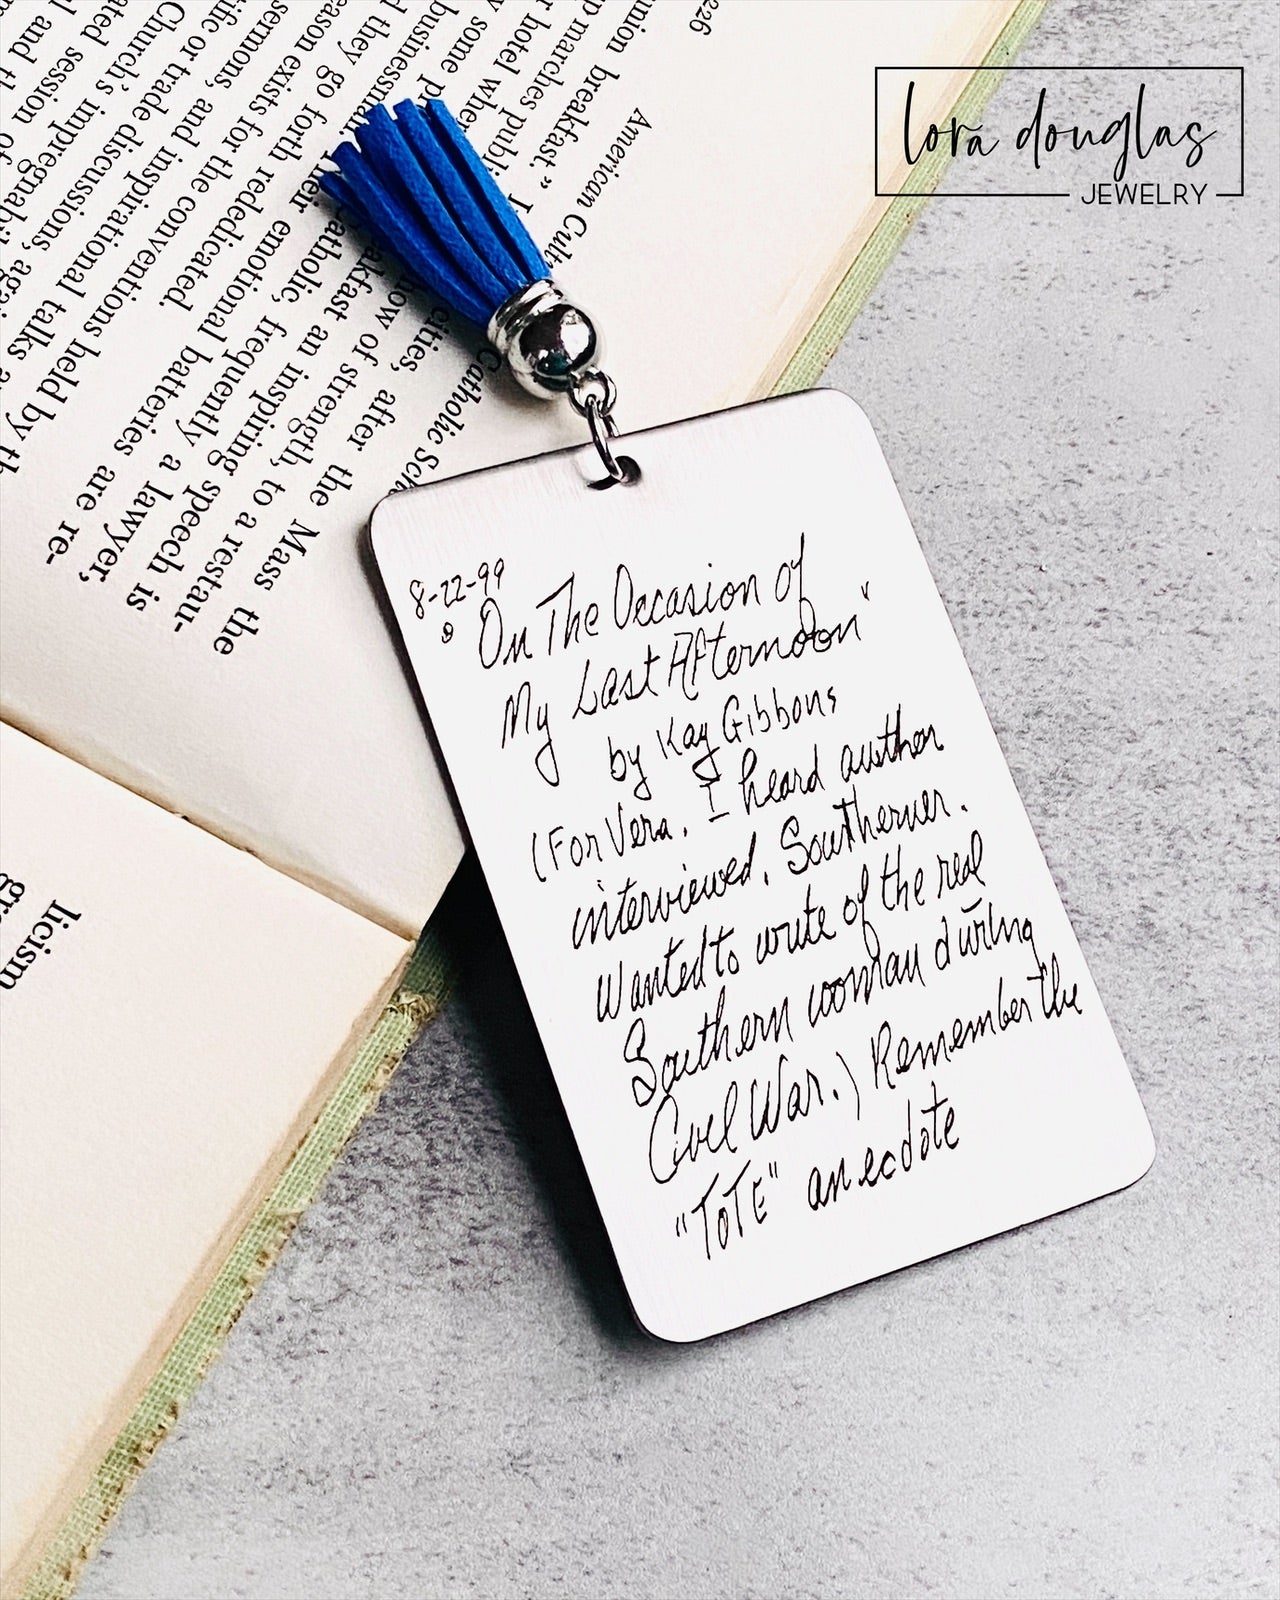 lora douglas
JEWELRY
226
union breakfast."
American Cult
Catholic Sch
the Mass the
cities, after
how of strength, to a restau-
eakfast an inspiring speech is
Catholic, frequently a lawyer,
heir emotional batteries are re-
they go forth rededicated.
eason exists for the conventions held by th
sermons, and inspirational talks
ific or trade discussions,
Church's impregnabil
ated session of
licism
8-22-99
" On The Occasion of
My Last Afternoon"
by Kay Gibbons
(For Vera. I heard author
interviewed. Southerner.
Wanted to write of the real
Southern woman during
Civil War.) Remember the
"ToTE" anecdote